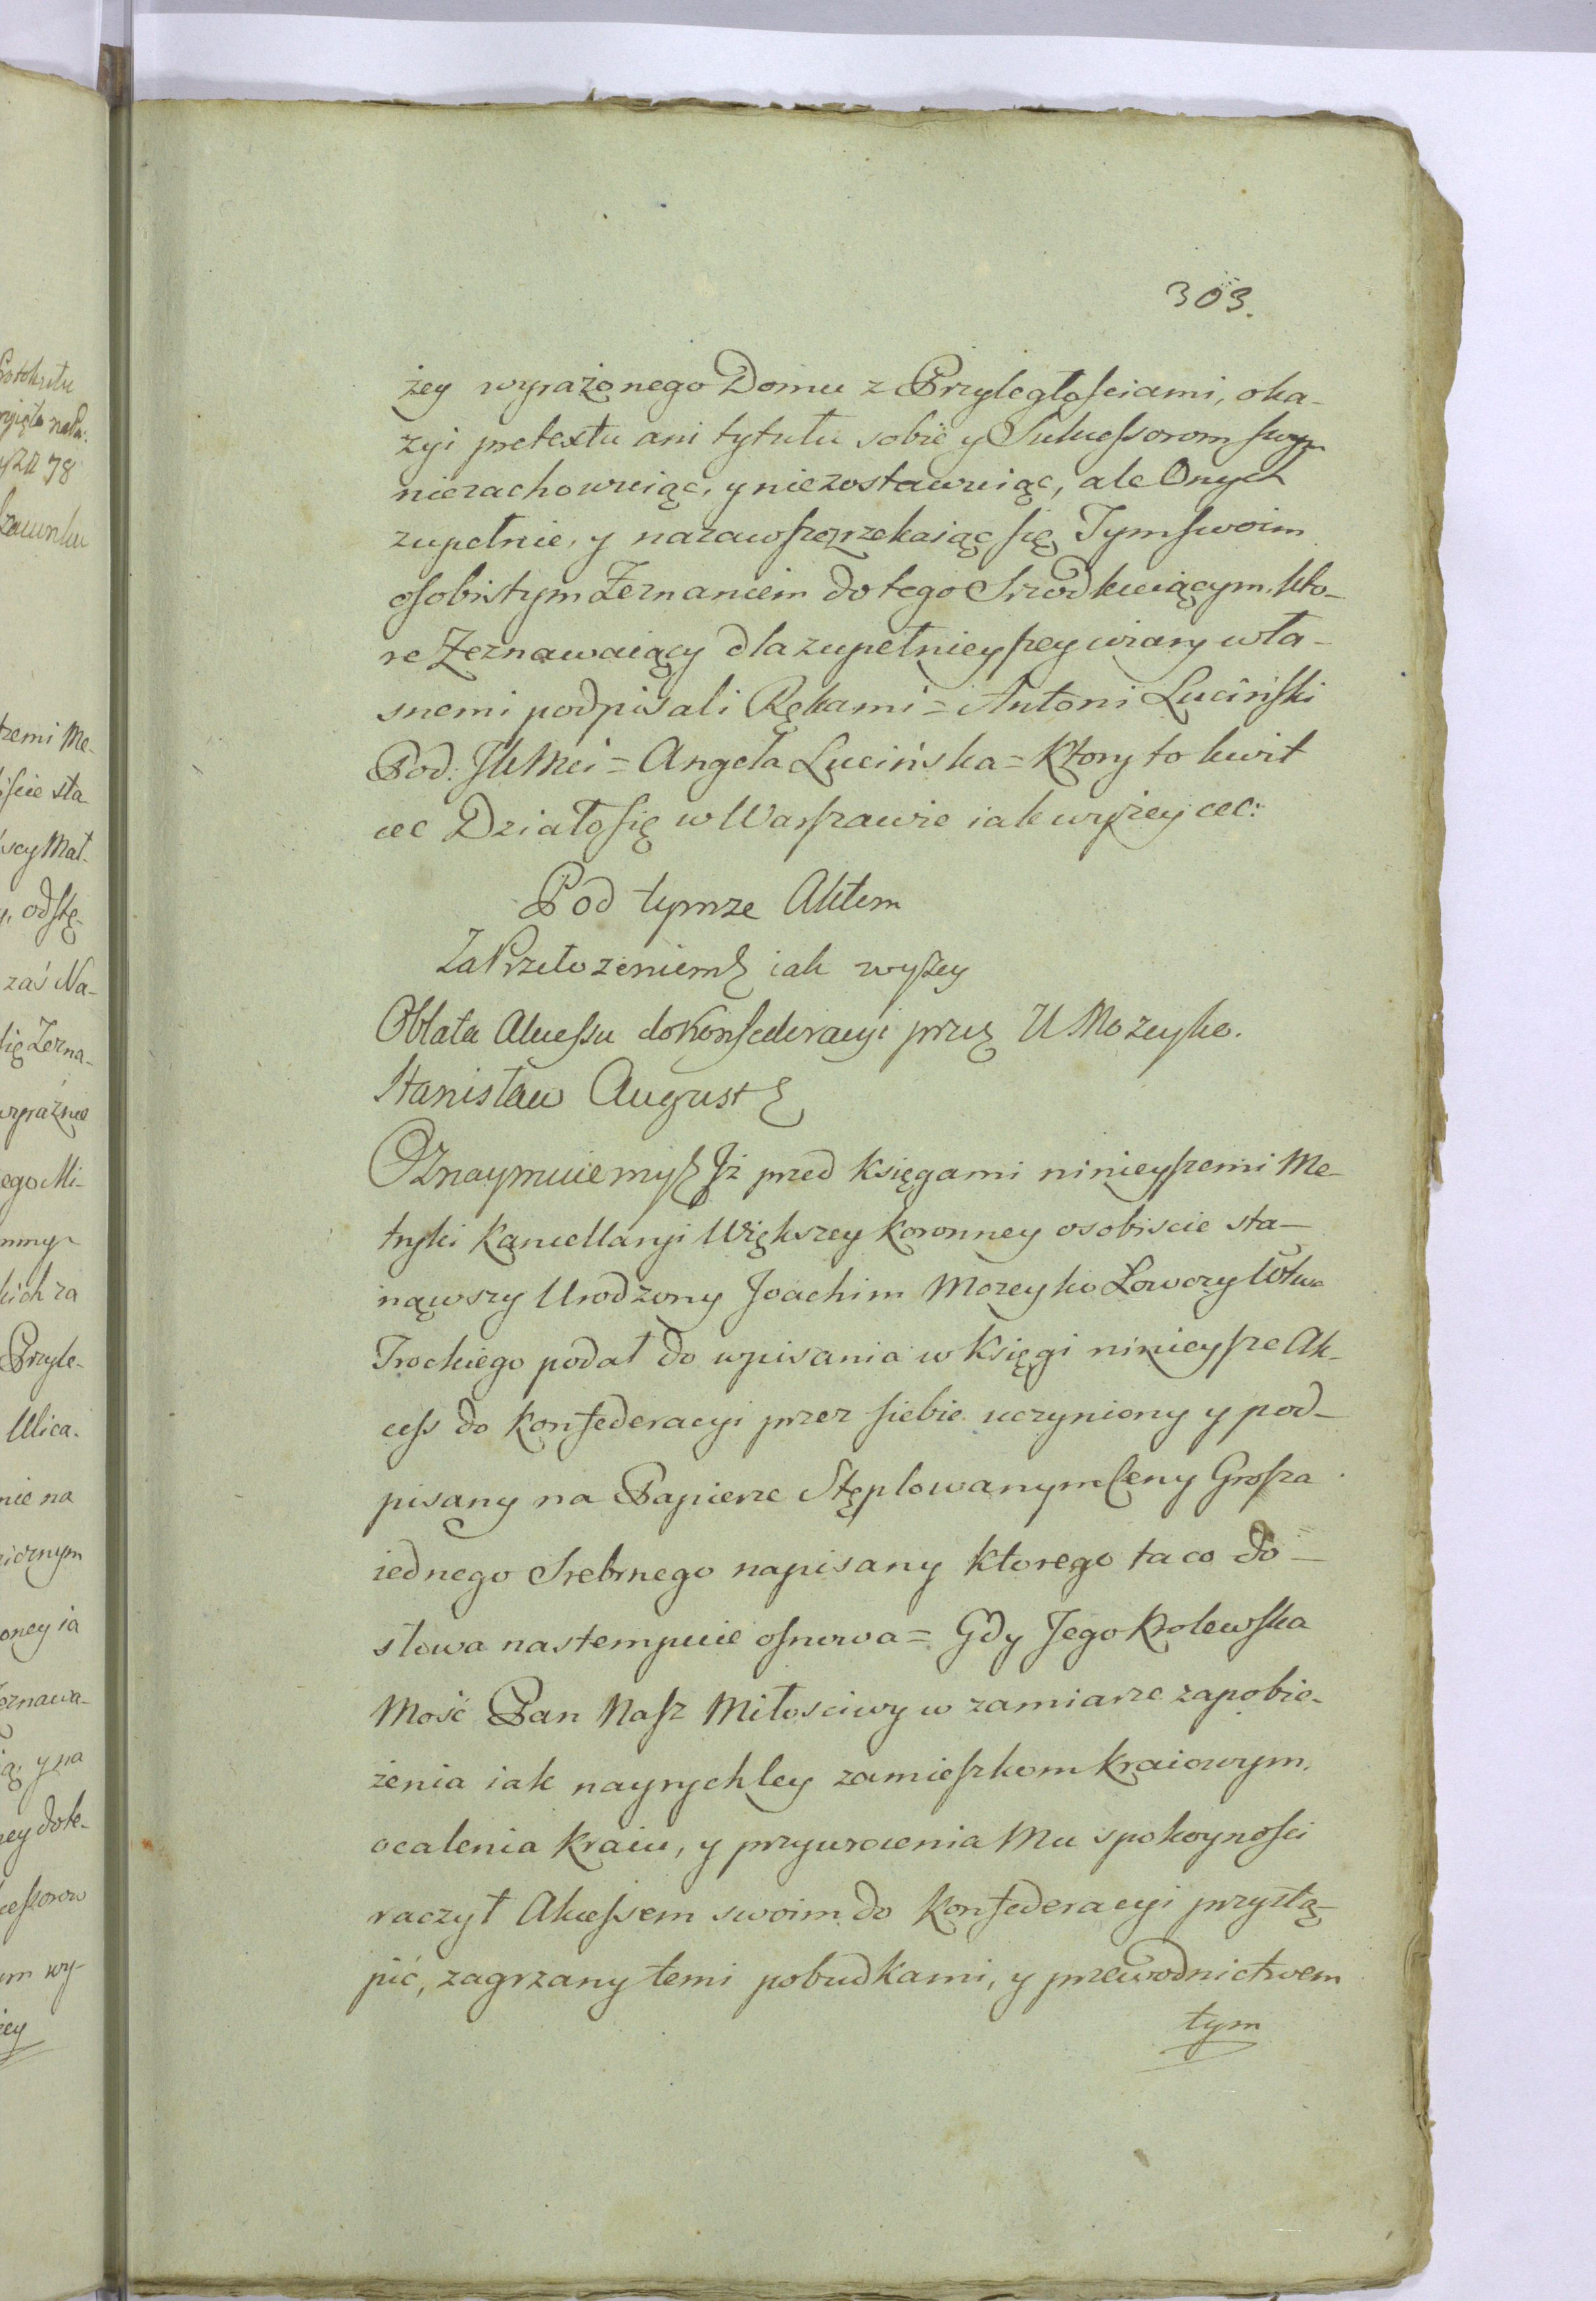 303.
żey wyrażonego Domu z Przyległościami, oka-
zyi pretextu ani tytułu sobie y Sukcessorom swym
niezachowuiąc, y niezostawuiąc, ale Onych
zupełnie, y nazawsze zrzekaiąc się Tym swoim
osobistym Zeznaniem do tego Srzodkuiącym, kto-
re Zeznawaiący dla zupełnieyszey wiary wła-
snemi podpisali Rękami = Antoni Luciński
Pod: JKMci = Angela Lucińska = Ktory to kwit
etc Działo się w Warszawie iak wyżey etc:
Pod tymze Aktem
Za Przełozeniem iak wyżey
Oblata Akcessu do Konfederacyi przez U Mozeyko.
Stanisław August
Oznaymuiemy Jż przed Księgami ninieyszemi Me-
tryki Kancellaryi Większey Koronney osobiscie sta-
nąwszy Urodzony Joachim Mozeyko Łowczy Wtwa
Trockiego podał do wpisania w Księgi ninieysze Ak-
cess do Konfederacyi przez siebie uczyniony y pod-
pisany na Papierze Stęplowanym Ceny Grosza
iednego Srebrnego napisany ktorego ta co do-
słowa nastempuie osnowa = Gdy Jego Krolewska
Mość Pan Nasz Miłosciwy w zamiarze zapobie-
żenia iak nayrychley zamieszkom Kraiowym,
ocalenia Kraiu, y przywrocenia Mu spokoyności
raczył Akcessem swoim do Konfederacyi przystą-
pić, zagrzany temi pobudkami, y przewodnictwem
tym